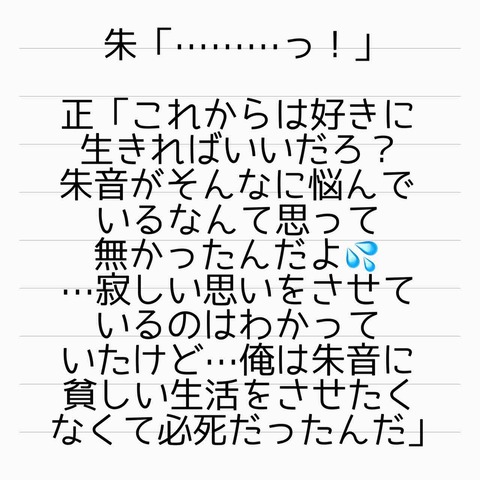 朱「………っ！」
正「これからは好きに
生きればいいだろ？
朱音がそんなに悩んで
いるなんて思って
無かったんだよ💦
…寂しい思いをさせて
いるのはわかって
いたけど…俺は朱音に
貧しい生活をさせたく
なくて必死だったんだ」